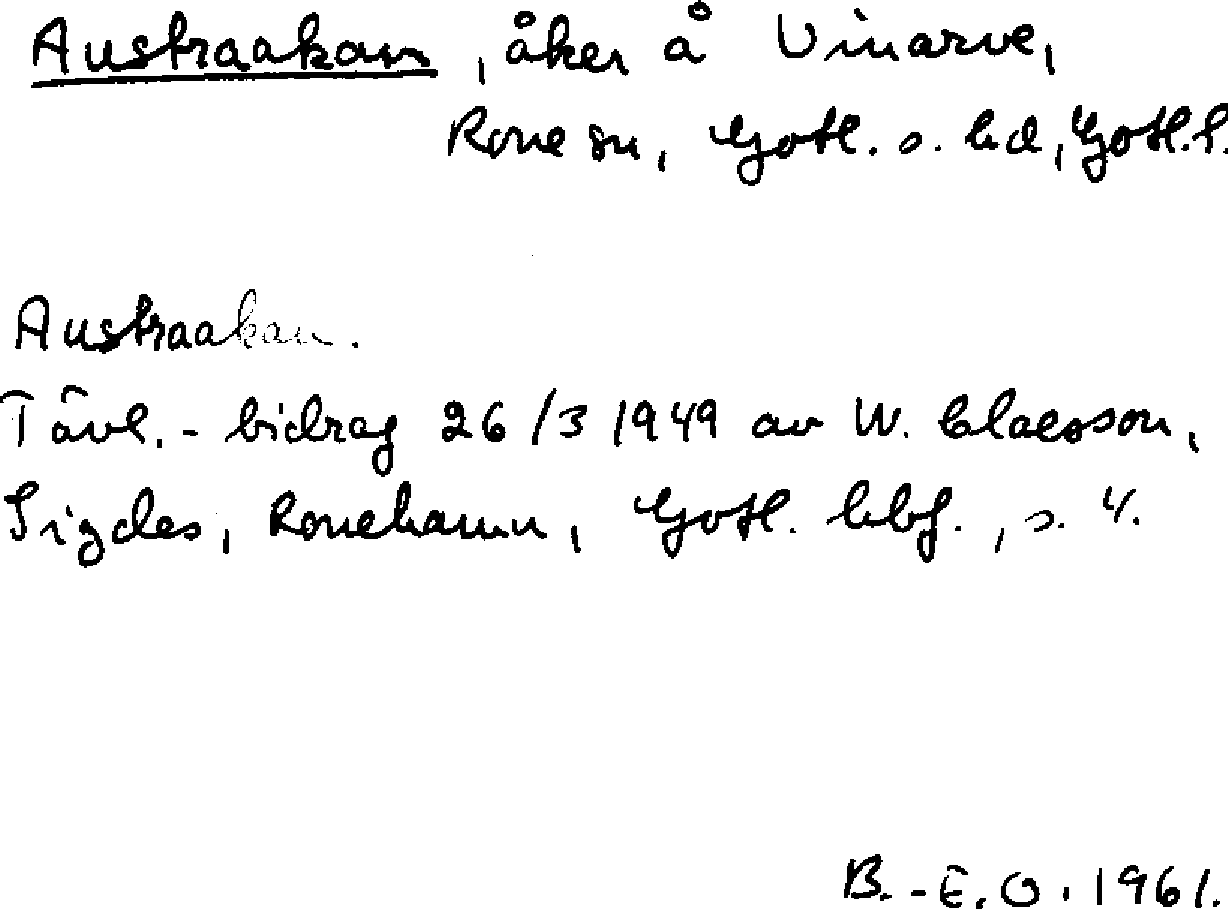 Austraakan, åker å Vinarve,
Rone sn, Gotl. s. hd, Gotl. l.
Austraakan.
Tävl.-bidrag 26/3 1949 av W. Claesson,
Sigdes, Ronehamn, Gotl. s. 4.
B.-E. O. 1961.